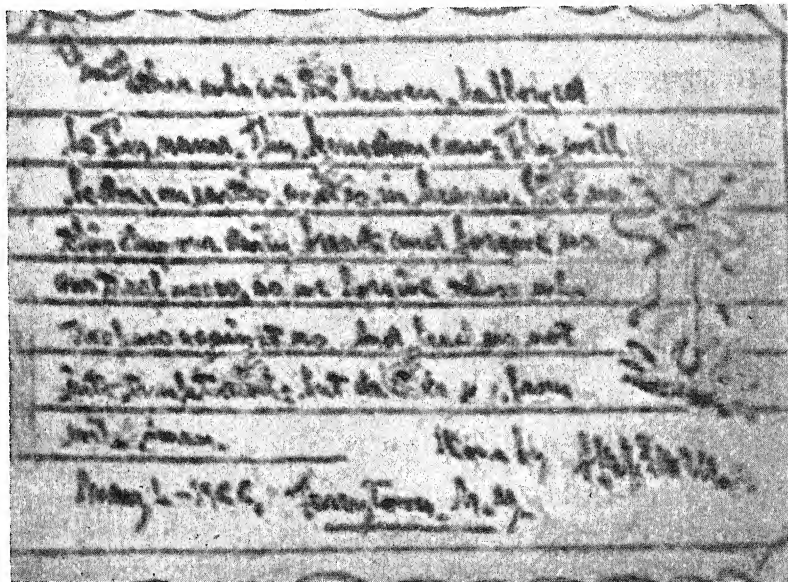 who art in heaven, hallowed
be Thy name. Thy kingdom come, Thy will
be done on earth, as it is in heaven. Give us
this day our daily bread; and forgive us
our trespasses, as we forgive those who
trespass against us. And lead us not
into temptation; but deliver us from
evil. Amen. Done by
Tarrytown. N.Y.